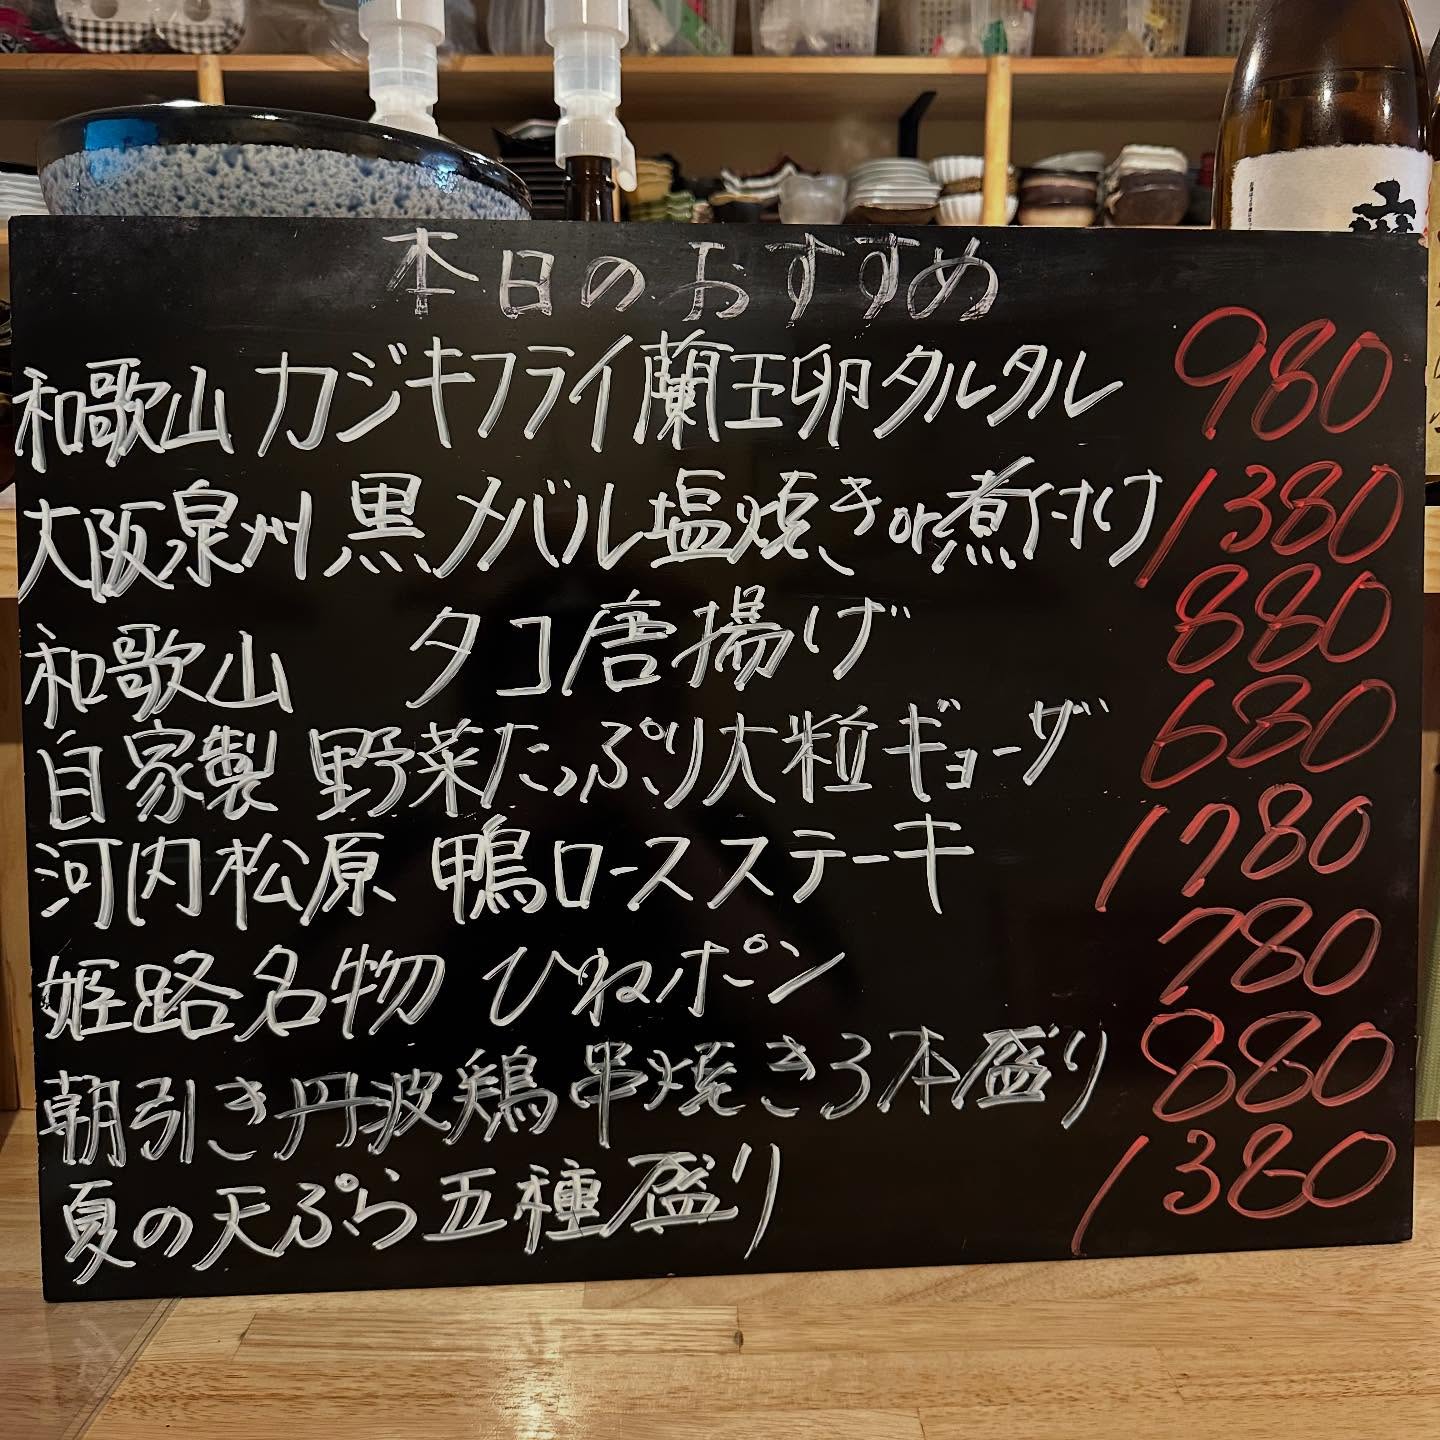 本日のおすすめ
和歌山 カジキフライ蘭王卵タルタル 980
大阪泉州 黒メバル塩焼きor煮付け 1380
和歌山 タコ唐揚げ 880
自家製 野菜たっぷり大粒ギョーザ 680
河内松原 鴨ロースステーキ 1780
姫路名物 ひねポン 780
朝引き丹波鶏串焼き3本盛り 880
夏の天ぷら五種盛り 1380